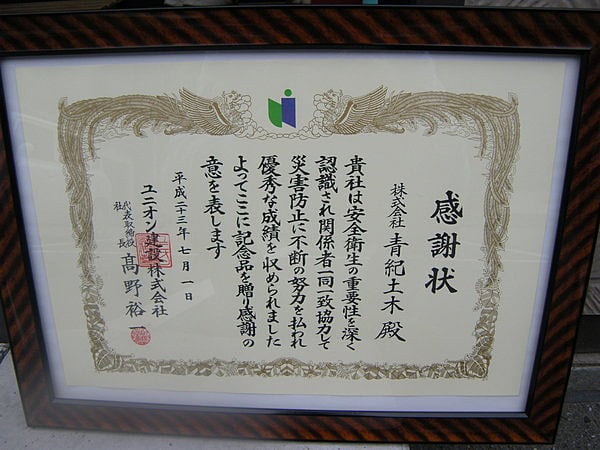 感謝状
株式会社 青紀土木 殿
貴社は安全衛生の重要性を深く
認識され関係者一同一致協力して
災害防止に不断の努力を払われ
優秀な成績を収められました
よってここに記念品を贈り感謝の
意を表します
平成二十三年七月一日
ユニオン建設株式会社
代表取締役
社長
髙野裕一